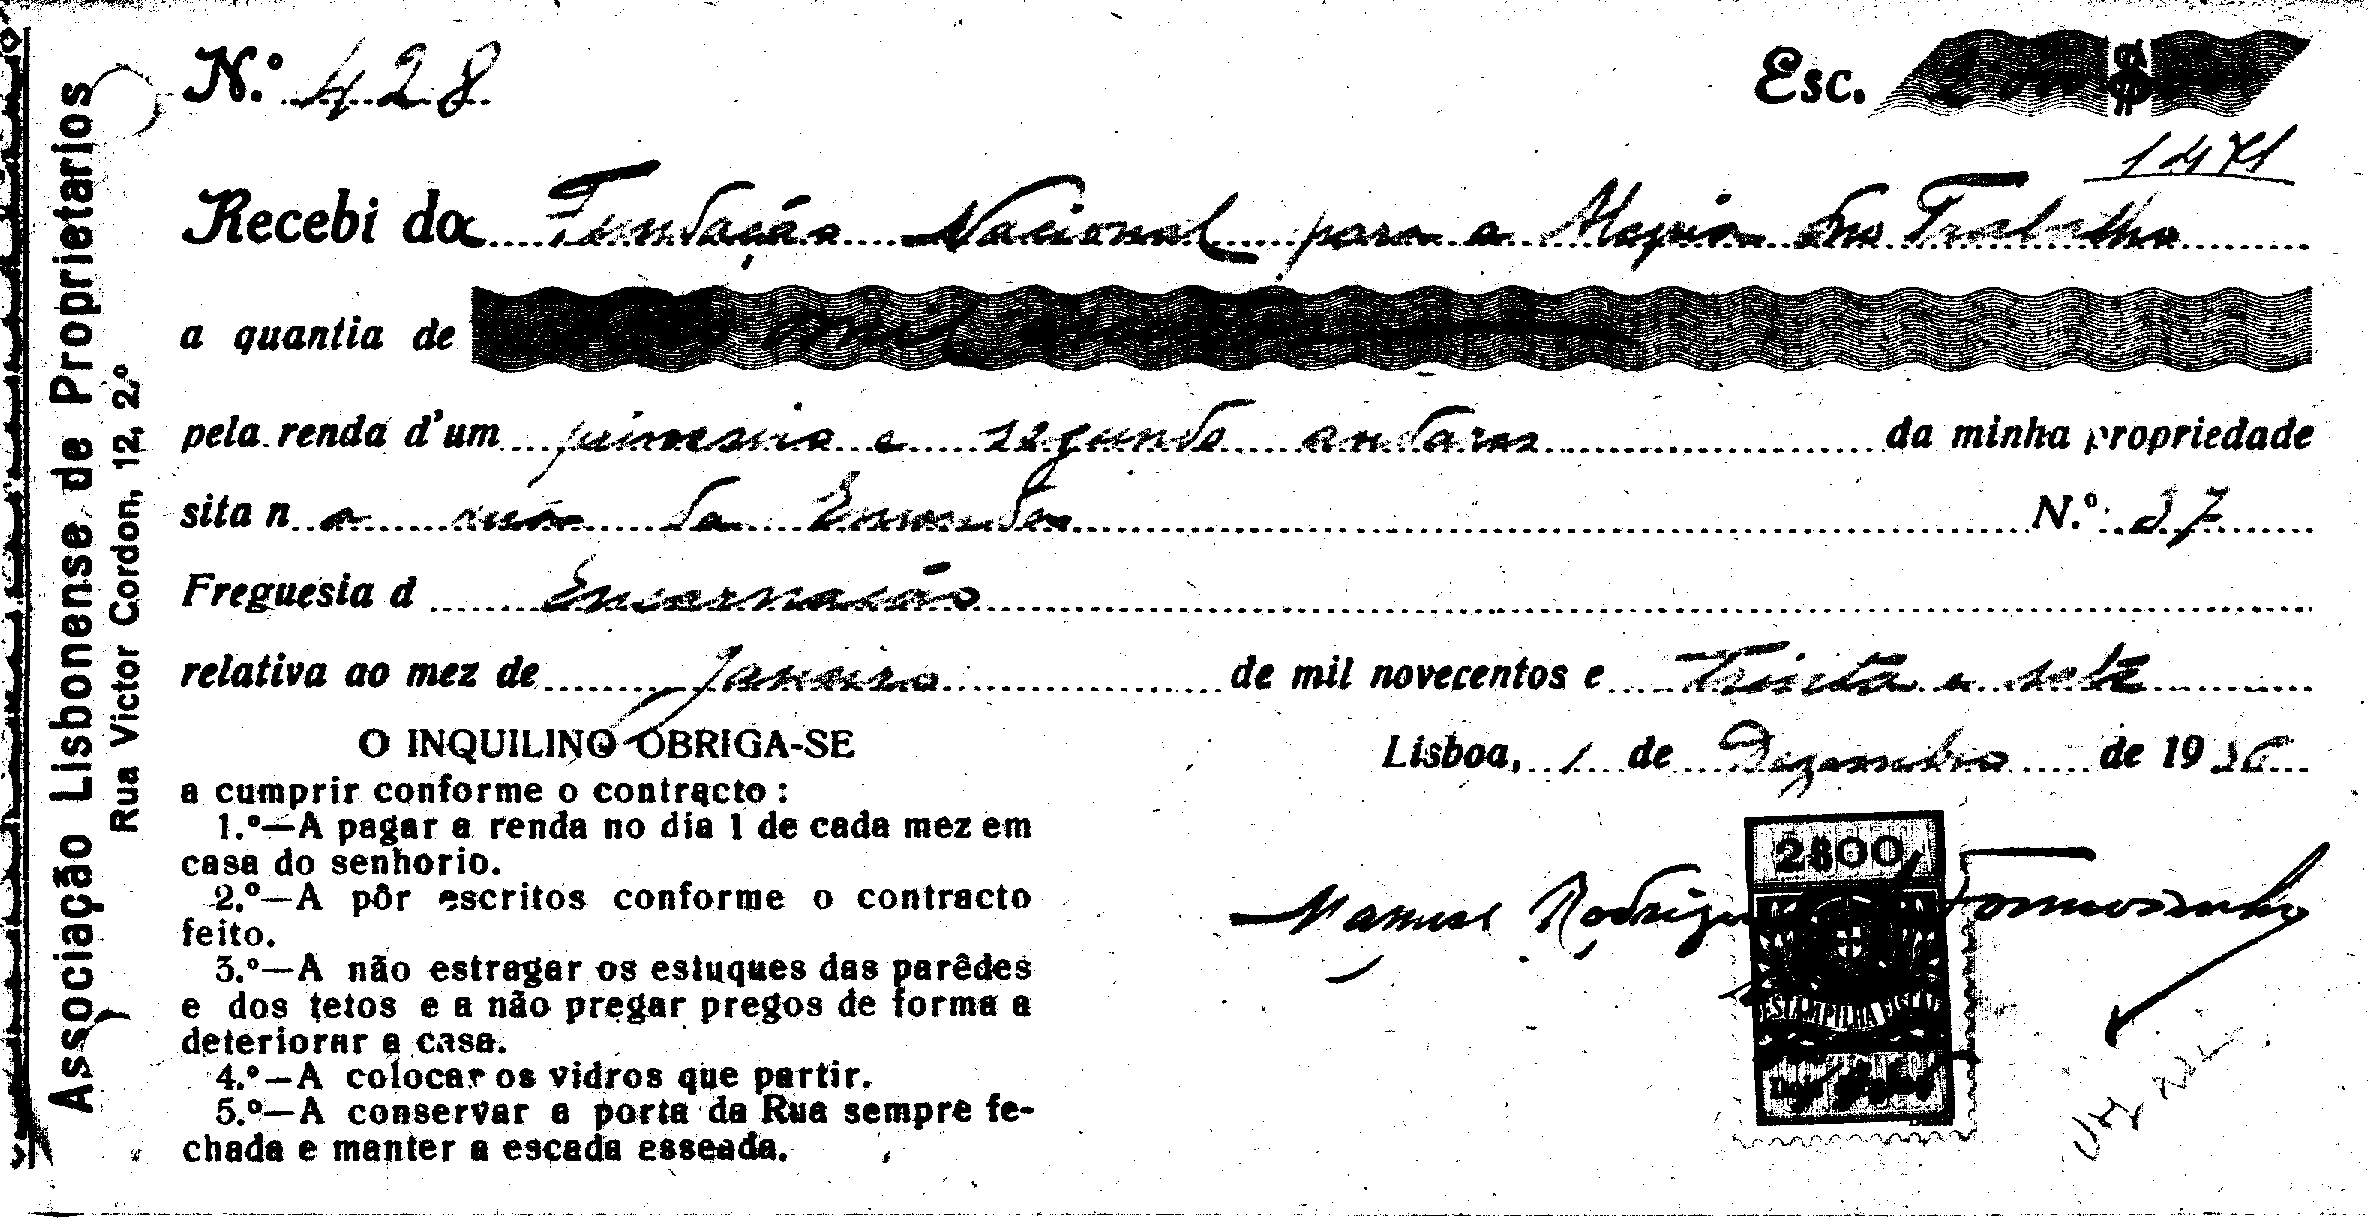 Associação Lisbonense de Proprietarios
Rua Victor Cordon, 12, 2.º
N.º 428
Esc. $
1471
Recebi da Fundação Nacional para a Alegria no Trabalho
a quantia de mil
pela renda d'um primeiro e segundo andares da minha propriedade
sita n a rua da Emenda N.º 37
Freguesia d Encarnação
relativa ao mez de Janeiro de mil novecentos e trinta e sete
Lisboa, 1 de Dezembro de 1936
O INQUILINO OBRIGA-SE
a cumprir conforme o contracto :
1.º—A pagar a renda no dia 1 de cada mez em
casa do senhorio.
2.º—A pôr escritos conforme o contracto
feito.
3.º—A não estragar os estuques das parêdes
e dos tetos e a não pregar pregos de forma a
deteriorar a casa.
4.º—A colocar os vidros que partir.
5.º—A conservar a porta da Rua sempre fe-
chada e manter a escada esseada.
2$00
Manuel Rodrigues Formosinho
ESTAMPILHA FISCAL